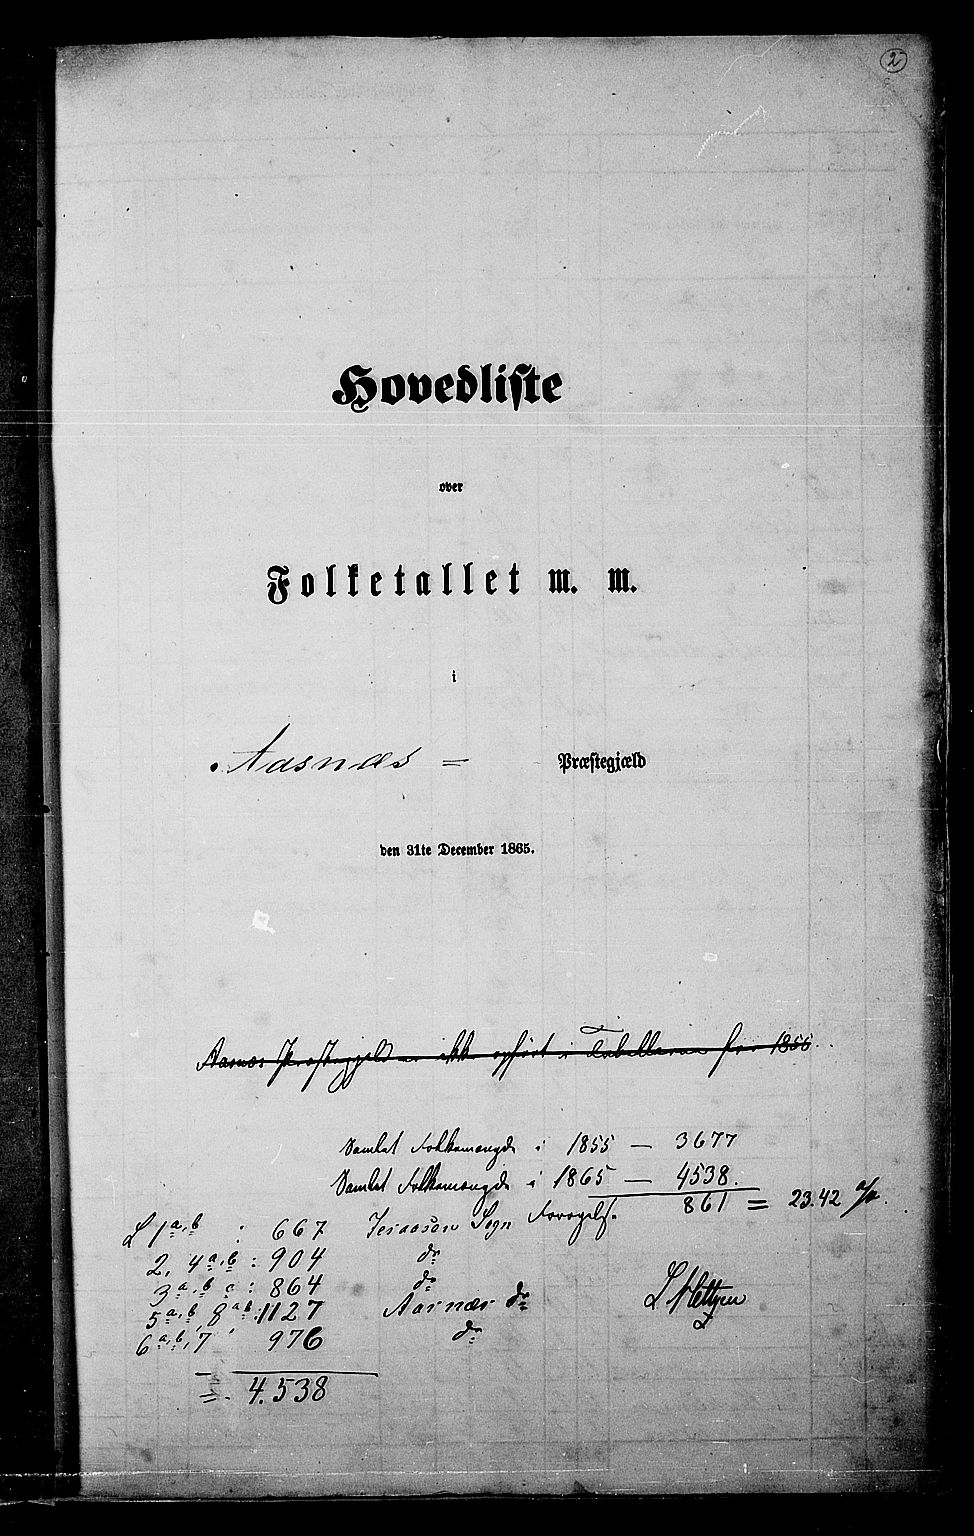 2
Hovedliste
over
Folketallet m. m.
i
Aasnæs = Præstegjæld
den 31te December 1865.
Aasnæs Præstegjeld er ikke opført i Tabellerne for 1855.
Samlet Folkemængde i 1855 — 3677
Samlet Folkemængde i 1865 — 4538.
Forøgelse 861 = 23.42 %.
L 1 a, b : 667 Sogn
2, 4 a, b : 904 do
3 a, b c : 864 do
5 a, b, 8 a b : 1127 Aasnæs do
6 a, b, 7 976 do
= 4.538